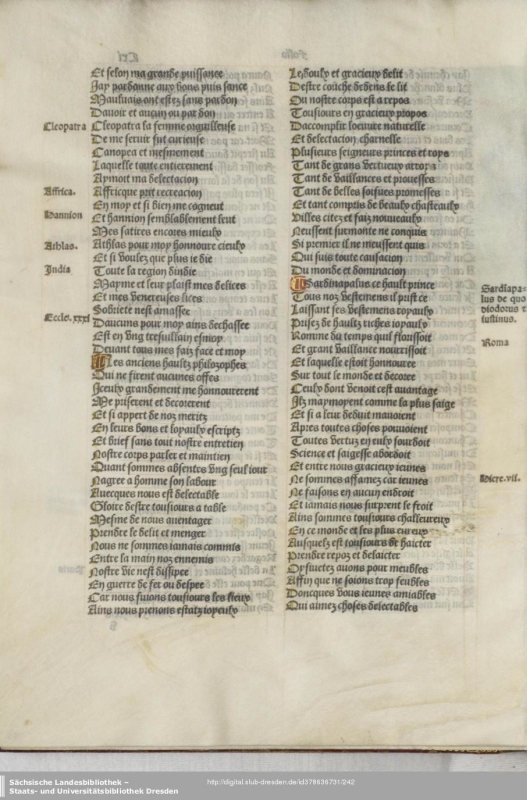 Et selon ma grande puissance
Jay pardonne aux bons puis sance
Mauluais ont estez sans pardon
Dauoir et aucun ou par don
Cleopatra
Cleopatra la femme orguilleuse
De me seruir fut curieuse
Canopea et mesmement
Laquelle toute entierement
Aymoit ma delectacion
Affrica.
Affricque prit recreacion
En moy et si bien me cogneut
Hannion
Et hannion semblablement leut
Mes satires encores mieulx
Athlas.
Athlas pour moy honnoure cieulx
Et si voulez que plus ie die
India
Toute la region dindie
Mayme et leur plaist mes delices
Et mes venereuses lices
Sobriete nest amassee
Eccle. xxxi
Daucuns pour moy ains dechassee
Est en vng tresuillain esmoy
Deuant tous mes faiz face et moy
Les anciens haultz philozophes
Qui ne firent aucunes offes
Iceulx grandement me honnourerent
Me priserent et decorerent
Et si appert de noz meritz
En leurs bons et loyaulx escriptz
Et brief sans tout nostre entretien
Nostre corps parler et maintien
Quant sommes absentes vng seul iour
Nagree a homme son labour
Auecques nous est delectable
Gloire destre tousiours a table
Mesme de nous auentager
Prendre le delit et menger
Nous ne sommes iamais commis
Entre la main noz ennemis
Nostre vie nest dissipee
En guerre de fer ou despee
Car nous fuions tousiours les lieux
Ains nous prenons estatz ioyeulx
Le doulx et gracieux delit
Destre couche dedens le lit
Ou nostre corps est a repos
Tousiours en gracieux propos
Daccomplir locuure naturelle
Et delectacion charnelle
Plusieurs seigneurs princes et roys
Tant de grans vertueux arroys
Tant de vaillances et prouesses
Tant de belles soifues promesses
Et tant compris de beaulx chasteaulx
Villes citez et faiz nouueaulx
Neussent surmonte ne conquis
Si premier il ne meussent quis
Qui suis toute causacion
Du monde et dominacion
Sardinapalus ce hault prince
Sardiapa-
lus de quo
diodorus et
iustinus.
Tous noz vestemens il prist ce
Laissant ses vestemens royaulx
Prisez de haultz riches ioyaulx
Romme du temps quil florissoit
Roma
Et grant vaillance nourrissoit
Et laquelle estoit honnouree
Sur tout le monde et decoree
Ceulx dont venoit cest auantage
Ilz maymoyent comme la plus saige
Et si a leur deduit mauoient
Apres toutes choses pouuoient
Toutes vertuz en eulx sourdoit
Science et saigesse abordoit
Et entre nous gracieux ieunes
Hiere. vii.
Ne sommes affamez car ieunes
Ne faisons en aucun endroit
Et iamais nous surprent le froit
Ains sommes tousiours challeureux
En ce monde et les plus eureux
Ausquelz est tousiours de haicter
Prendre repoz et delaicter
Oysiuetez auons pour meubles
Affin que ne soions trop feubles
Doncques vous ieunes amiables
Qui aimez choses delectables
Sächsische Landesbibliothek –
Staats- und Universitätsbibliothek Dresden
http://digital.slub-dresden.de/id378636731/242